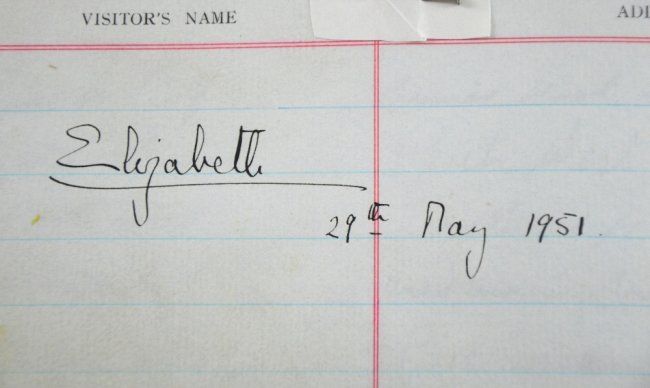 VISITOR'S NAME
Elizabeth
29th May 1951.